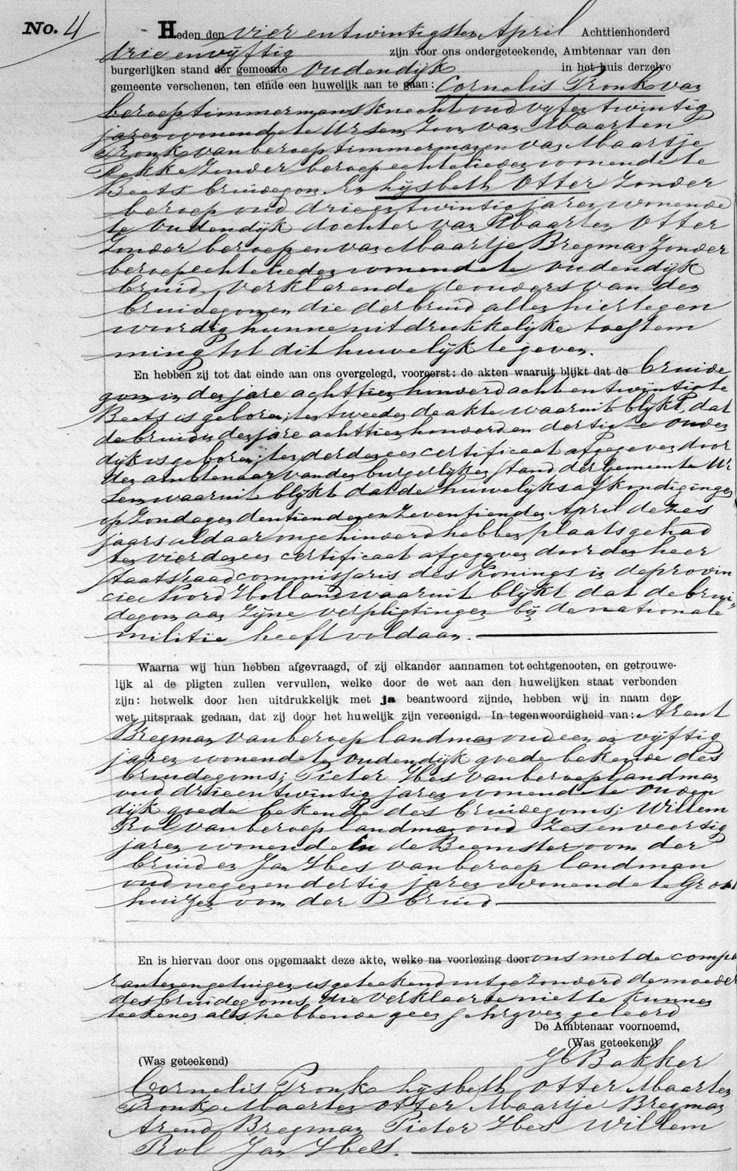 No. 4
Heden den vier en twintigsten April Achttienhonderd
drie en vijftig zijn voor ons ondergeteekende, Ambtenaar van den
burgerlijken stand der gemeente Oudendijk in het huis derzelve
gemeente verschenen, ten einde een huwelijk aan te gaan: Cornelis Pronk van
beroep timmermansknecht oud vyf en twintig
jaren wonende te Ursem Zoon van Maarten
Pronk van beroep timmerman en van Maartje
Dekke Zonder beroep echtelieden wonende te
Beets bruidegom. En Lijsbeth Otter Zonder
beroep oud drie en twintig jaren wonende
te Oudendijk dochter van Maarten Otter
Zonder beroep en van Maartje Bregman Zonder
beroep echtelieden wonende te Oudendijk
bruid, verklarende de ouders van den
bruidegom en die der bruid allen hier tegen
woordig hunne uitdrukkelijke toestem
ming tot dit huwelijk te geven.
En hebben zij tot dat einde aan ons overgelegd, vooreerst: de akten waaruit blijkt dat de bruide
gom in den jare achttien honderd acht en twintig te
Beets is geboren; ten tweede de akte waaruit blijkt, dat
de bruid in den jare achttien honderd en dertig te Ouden
dijk is geboren; ten derde een certificaat afgegeven door
den ambtenaar van den burgerlijken stand der gemeente Ur
sem, waaruit blijkt dat de huwelijksafkondigingen
op Zondagen den tienden en Zeventienden April dezes
jaars aldaar ongehinderd hebben plaats gehad
ten vierde een certificaat afgegeven door den heer
Staatsraad commissaris des Konings in de provin
cie Noord Holland waaruit blijkt dat de brui
degom aan Zijne verpligtingen bij de nationale
militie heeft voldaan.
Waarna wij hun hebben afgevraagd, of zij elkander aannamen tot echtgenooten, en getrouwe-
lijk al de pligten zullen vervullen, welke door de wet aan den huwelijken staat verbonden
zijn: hetwelk door hen uitdrukkelijk met ja beantwoord zijnde, hebben wij in naam der
wet uitspraak gedaan, dat zij door het huwelijk zijn vereenigd. In tegenwoordigheid van: Arent
Bregman van beroep landman oud een en vyftig
jaren wonende te Oudendijk goede bekende des
bruidegoms; Pieter Ibes van beroep landman
oud drie en twintig jaren wonende te Ouden
dijk goede bekende des bruidegoms; Willem
Rol van beroep landman oud Zes en veertig
jaren wonende in de Beemster oom der
bruid en Jan Ibes van beroep landman
oud negen en dertig jaren wonende te Groot
huizen oom der bruid
En is hiervan door ons opgemaakt deze akte, welke na voorlezing door ons met de compa
ranten en getuigen is geteekend uitgezonderd de moeder
des bruidegoms, die verklaarde niet te kunnen
teekenen als hebbende geen schryven geleerd
De Ambtenaar voornoemd,
(Was geteekend)
(Was geteekend) Bakker
Cornelis Pronk Lijsbeth Otter Maarten
Pronk Maarten Otter Maartje Bregman
Arend Bregman Pieter Ibes Willem
Rol Jan Ibels.